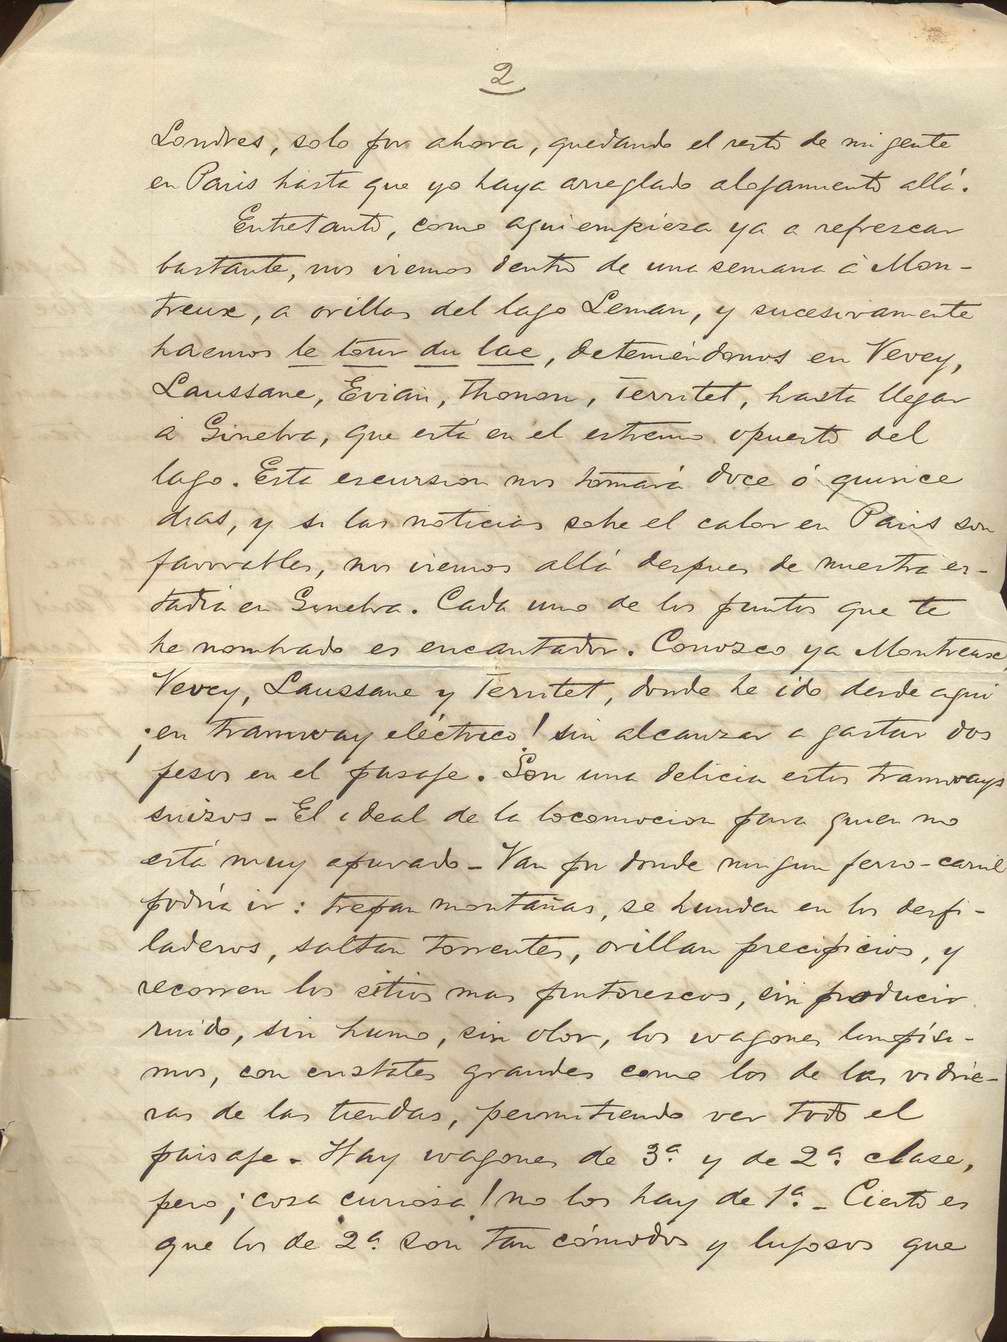 2
Londres, solo por ahora, quedando el resto de mi gente
en Paris hasta que yo haya arreglado alojamiento allá.
Entretanto, como aqui empieza ya a refrescar
bastante, nos iremos dentro de una semana á Mon-
treux, a orillas del lago Leman, y sucesivamente
haremos le tour du lac, deteniéndonos en Vevey,
Laussane, Evian, Thonon, Territet, hasta llegar
á Ginebra, que está en el estremo opuesto del
lago. Esta escursion nos tomará doce ó quince
dias, y si las noticias sobre el calor en Paris son
favorables, nos iremos allá despues de nuestra es-
tadia en Ginebra. Cada uno de los puntos que te
he nombrado es encantador. Conozco ya Montreux
Vevey, Laussane y Territet, donde he ido desde aqui
¡en tramway eléctrico! sin alcanzar a gastar dos
pesos en el pasaje. Son una delicia estos tramways
suizos - El ideal de la locomocion para quien no
está muy apurado - Van por donde ningun ferro-carril
podria ir: trepan montañas, se hunden en los desfi-
laderos, saltan torrentes, orillan precipicios, y
recorren los sitios mas pintorescos, sin producir
ruido, sin humo, sin olor, los wagones limpísi-
mos, con cristales grandes como los de las vidrie-
ras de las tiendas, permitiendo ver todo el
paisaje - Hay wagones de 3ª y de 2ª clase,
pero ¡cosa curiosa! no los hay de 1ª - Cierto es
que los de 2ª son tan cómodos y lujosos que